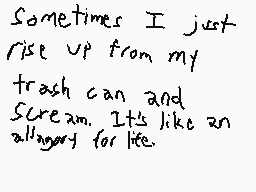 Sometimes I just
rise up from my
trash can and
scream. It's like an
allagory for life.